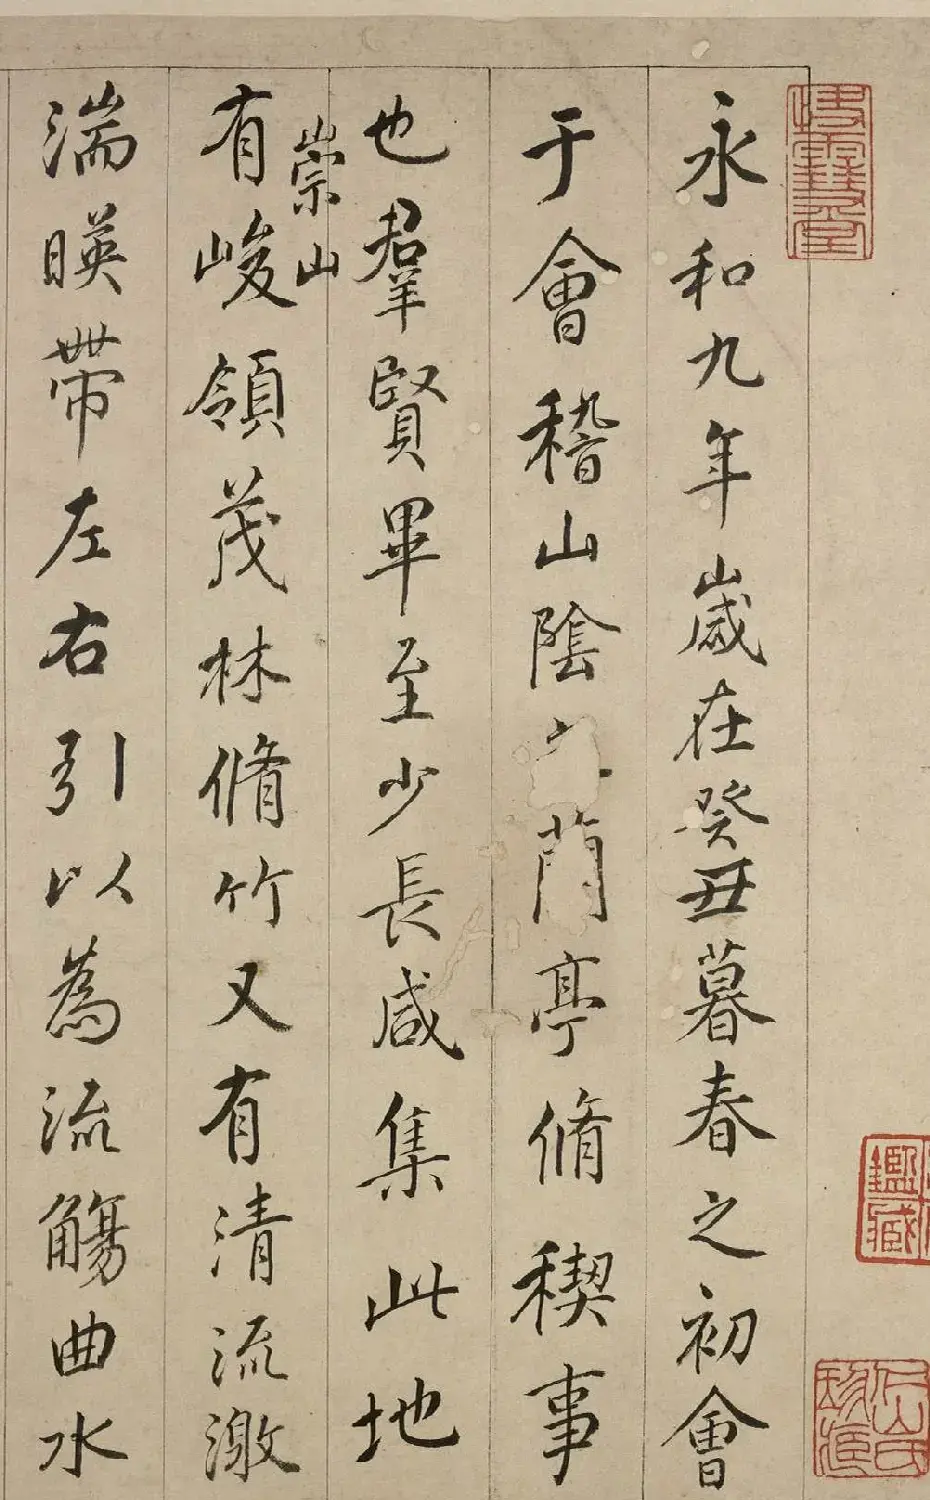 永和九年歲在癸丑暮春之初會
于會稽山陰之蘭亭脩稧事
也羣賢畢至少長咸集此地
有崇山峻領茂林脩竹又有清流激
湍暎帶左右引以為流觴曲水
鑑藏